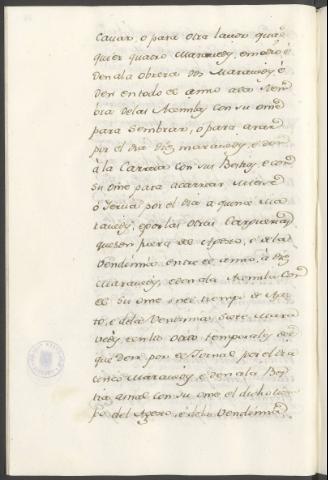 cauar, o para otra lauor qual
quier quatro Marauedis, e mdo é
den a la obrera dos Marauedis é
den en todo el año a la Sem
bra de las Acemilas con su ome
para sembrar, o para arar
por el dia diez marauedis, e den
á la Carreta con sus Bestias, e con
su ome para acarrear mieses
ó Jerua por el dia a quinze Ma
rauedis, e por las otras Carguerias
que sea fuera del Agosto, e de la
Vendimia entre el año, á diez
Marauedis, e den a la Acemila con
el Su ome en el tiempo de Ago
to, e de la Vendimia Siete Mara
vedis, e en los otros temporales de
que dure por el Jornal por el dia
cinco Marauedis, e den a la Bes
tia asnal con su ome el dicho tiem
po del Agosto, é de la Vendimia